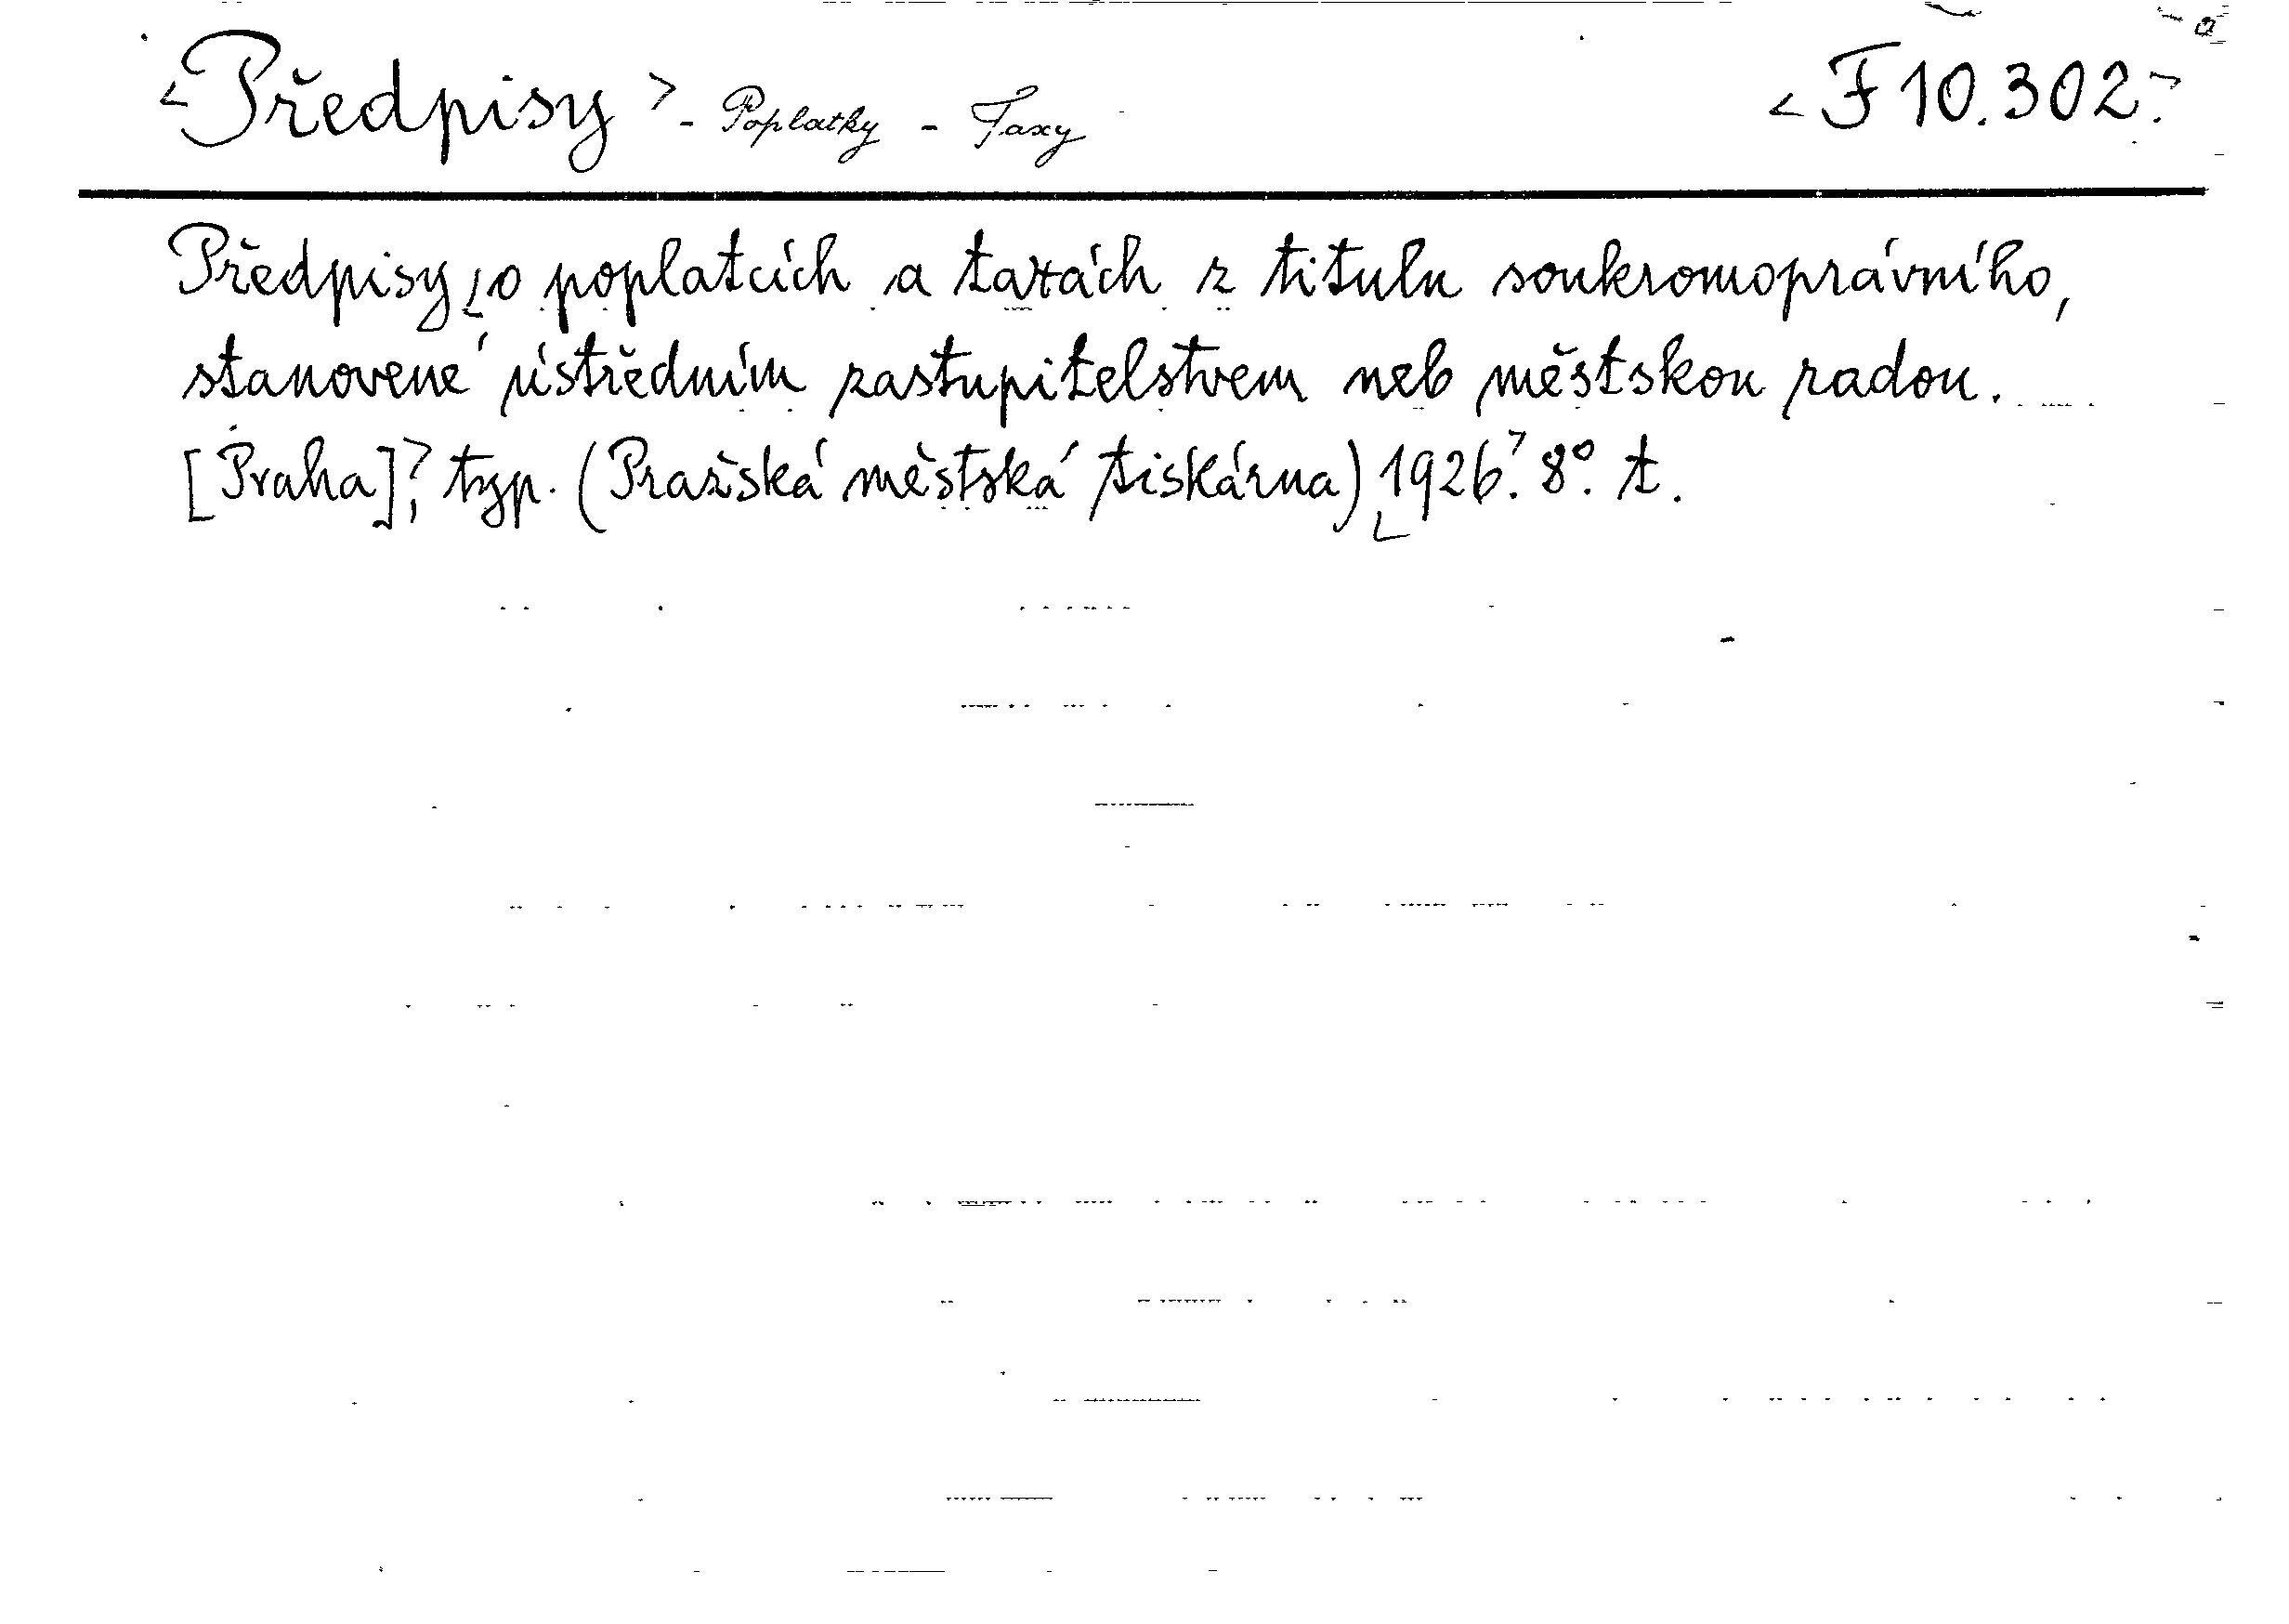 <Předpisy> - Poplatky - Taxy <F 10.302.>
Předpisy o poplatcích a taxách z titulu soukromoprávního,
stanovené ústředním zastupitelstvem neb městskou radou.
[Praha], typ. (Pražská městská tiskárna) 1926. 8°. t.